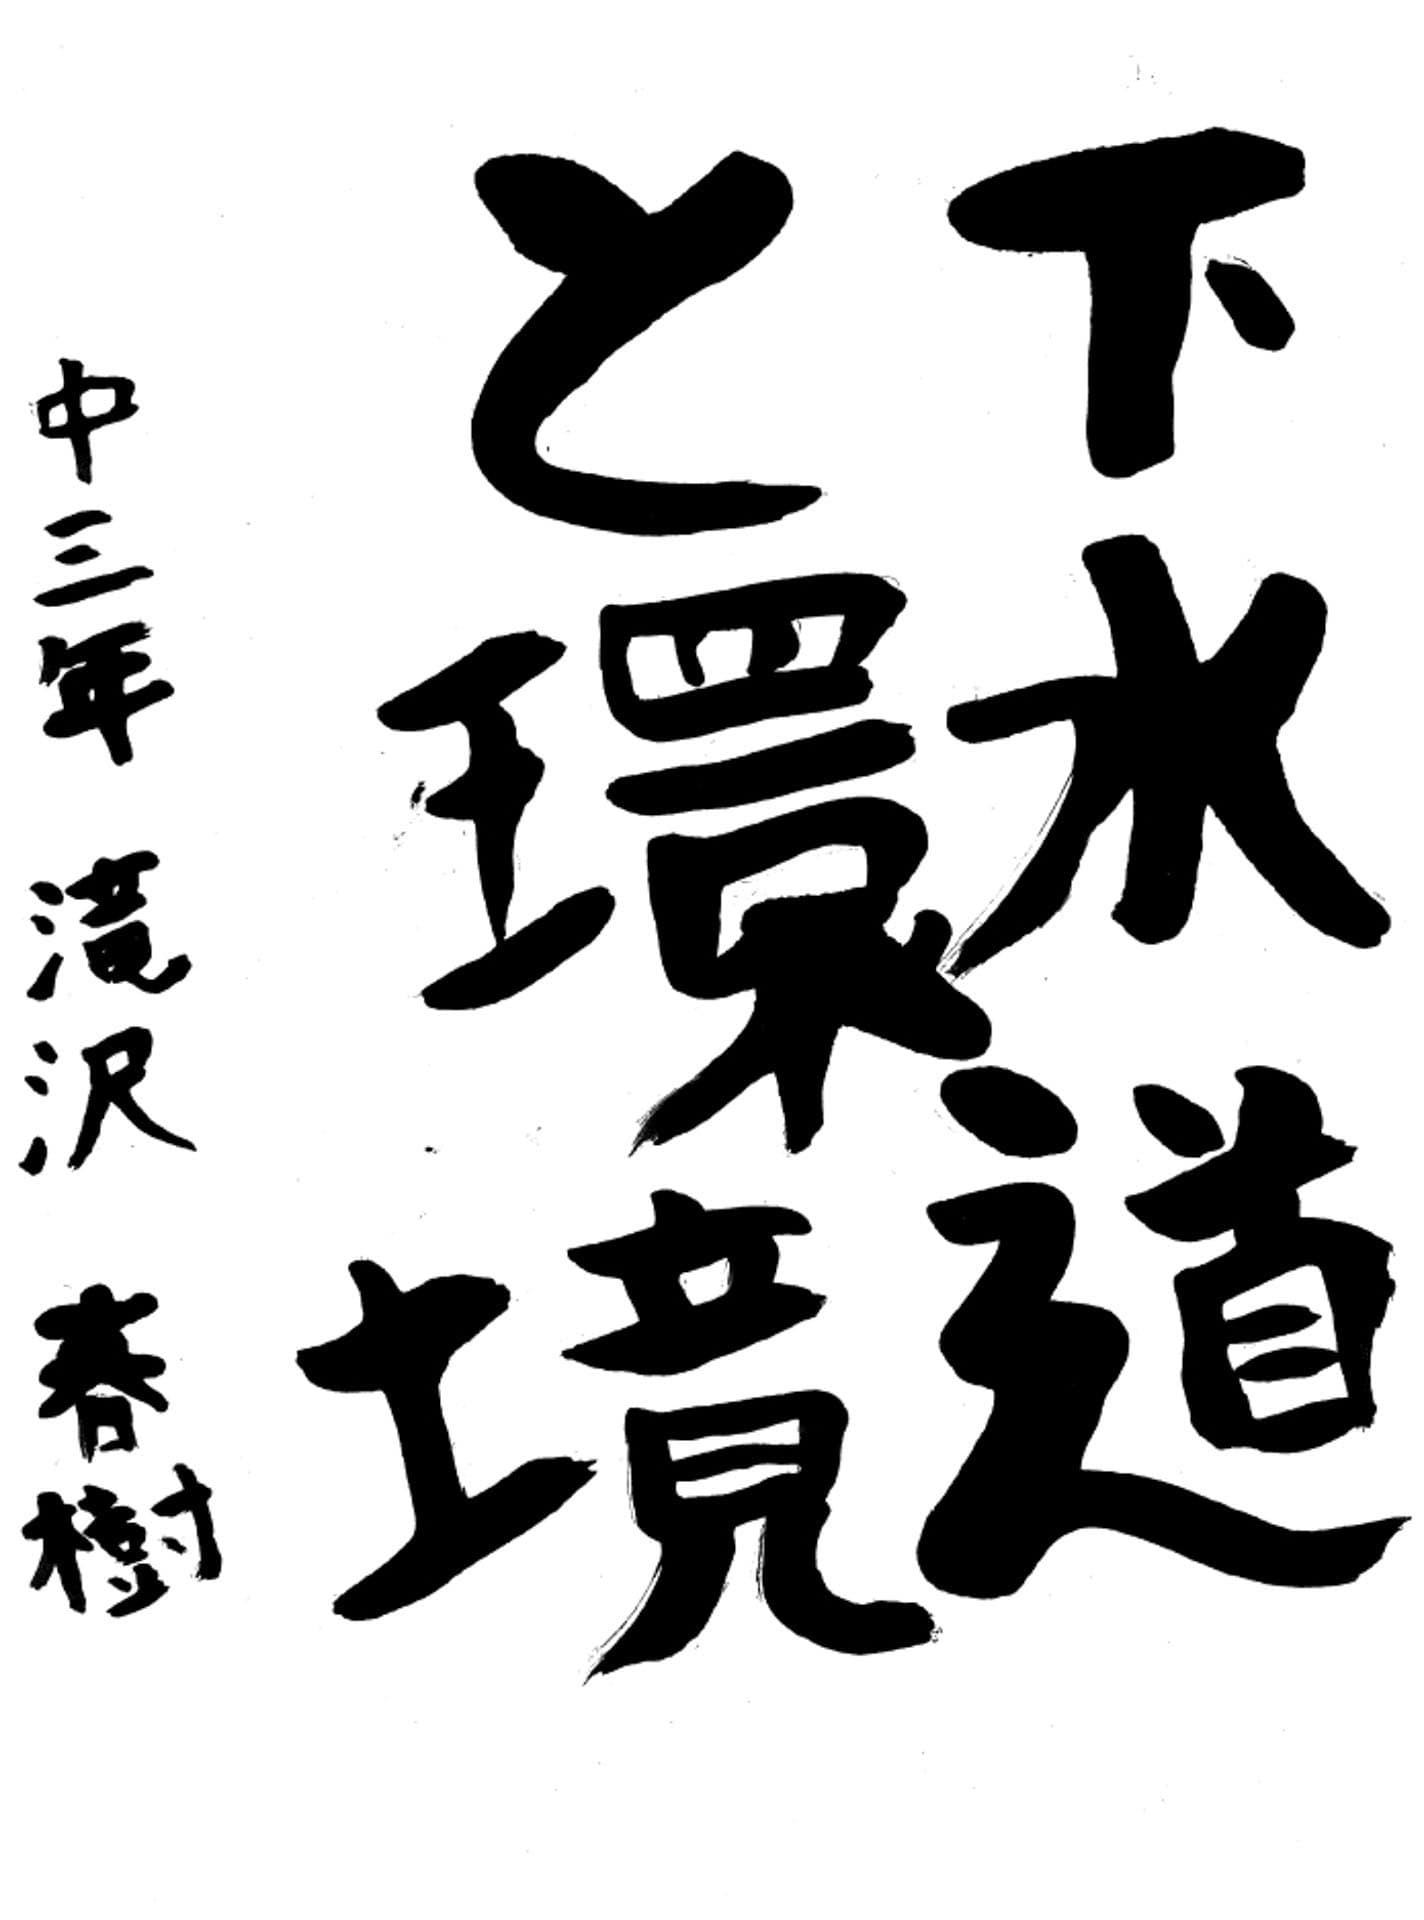 下水道
と環境
中三年 滝沢 春樹